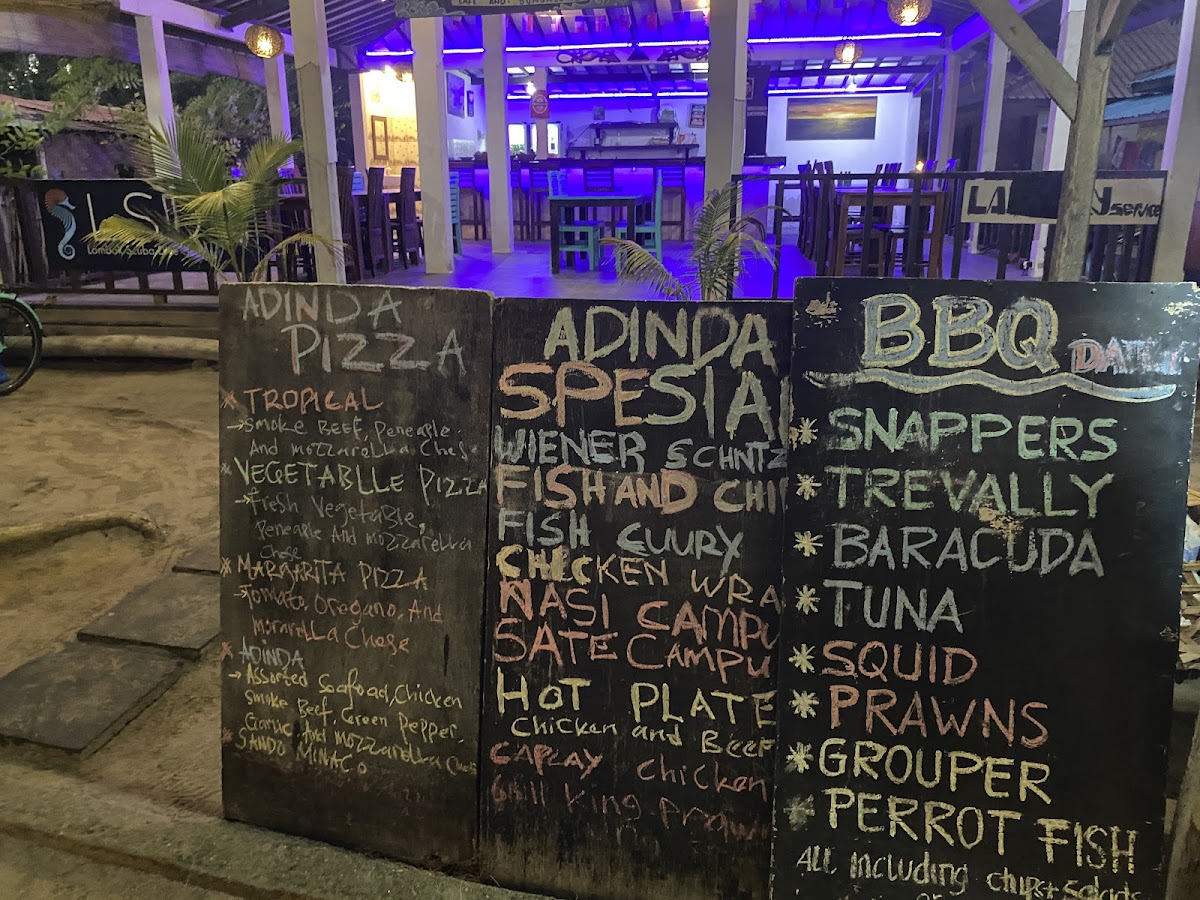 ADINDA
PIZZA
* TROPICAL
→ SMOKE BEEF, PENEAPLE
And mozzarella Chese
* VEGETABLLE PIZZA
→ Fresh Vegetable,
Peneaple And mozzarella
Chese
* MARGARITA PIZZA
→ Tomato, Oregano, And
* ADINDA
→ Assorted Seafoad, Chicken
Smoke Beef, Green Pepper,
Garlic And mozzarella
* SANDO MINACO
ADINDA
SPESIAL
WIENER SCHNTZ
FISH AND CHI
FISH CUURY
CHICKEN WRA
NASI CAMPU
SATE CAMPU
HOT PLATE
Chicken and Beef
CAPCAY chicken
Grill King prawn
BBQ DAILY
* SNAPPERS
* TREVALLY
* BARACUDA
* TUNA
* SQUID
* PRAWNS
* GROUPER
* PERROT FISH
ALL including chips + Salads
Service